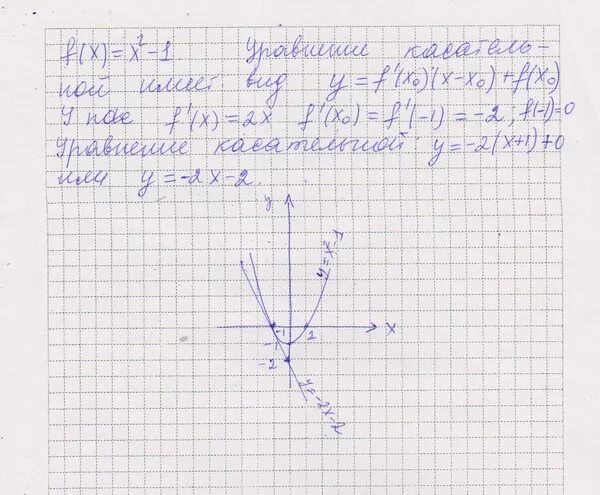 f(x)=x²-1 Уравнение касатель-
ной имеет вид y=f'(x₀)(x-x₀)+f(x₀)
У нас f'(x)=2x f'(x₀)=f'(-1)=-2; f(-1)=0
Уравнение касательной: y=-2(x+1)+0
или y=-2x-2.
y
y=x²-1
-1
1
x
-1
-2
y=-2x-2